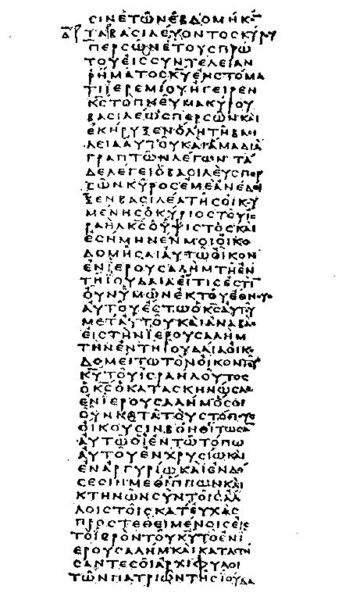 ϹΙΝΕΤΩΝΕΒΔΟΜΗΚΟ̅
ΤΑΒΑϹΙΛΕΥΟΝΤΟϹΚΥΡΟΥ
ΠΕΡϹΩΝΕΤΟΥϹΠΡΩ
ΤΟΥΕΙϹϹΥΝΤΕΛΕΙΑΝ
ΡΗΜΑΤΟϹΚ̅Υ̅ΕΝϹΤΟΜΑ
ΤΙΙΕΡΕΜΙΟΥΗΓΕΙΡΕΝ
Κ̅Ϲ̅ΤΟΠΝΕΥΜΑΚΥΡΟΥ
ΒΑϹΙΛΕΩϹΠΕΡϹΩΝΚΑΙ
ΕΚΗΡΥΞΕΝΟΛΗΤΗΒΑϹΙ
ΛΕΙΑΑΥΤΟΥΚΑΙΑΜΑΔΙΑ
ΓΡΑΠΤΩΝΛΕΓΩΝ ΤΑ
ΔΕΛΕΓΕΙΟΒΑϹΙΛΕΥϹΠΕΡ
ϹΩΝΚΥΡΟϹΕΜΕΑΝΕΔΕΙ
ΞΕΝΒΑϹΙΛΕΑΤΗϹΟΙΚΟΥ
ΜΕΝΗϹΟΚΥΡΙΟϹΤΟΥΙϹ
ΡΑΗΛΚ̅Ϲ̅ΟΥΨΙϹΤΟϹΚΑΙ
ΕϹΗΜΗΝΕΝΜΟΙΟΙΚΟ
ΔΟΜΗϹΑΙΑΥΤΩΟΙΚΟΝ
ΕΝΙΕΡΟΥϹΑΛΗΜΤΗΕΝ
ΤΗΙΟΥΔΑΙΑΕΙΤΙϹΕϹΤΙ
ΟΥΝΥΜΩΝΕΚΤΟΥΕΘΝΟΥϹ
ΑΥΤΟΥΕϹΤΩΟΚ̅Ϲ̅ΑΥΤΟΥ
ΜΕΤΑΥΤΟΥΚΑΙΑΝΑΒΑϹ
ΕΙϹΤΗΝΙΕΡΟΥϹΑΛΗΜ
ΤΗΝΕΝΤΗΙΟΥΔΑΙΑΟΙΚΟ
ΔΟΜΕΙΤΩΤΟΝΟΙΚΟΝΤΟΥ
Κ̅Υ̅ΤΟΥΙϹΡΑΗΛΟΥΤΟϹ
ΟΚ̅Ϲ̅ΟΚΑΤΑϹΚΗΝΩϹΑϹ
ΕΝΙΕΡΟΥϹΑΛΗΜΟϹΟΙ
ΟΥΝΚΑΤΑΤΟΥϹΤΟΠΟΥϹ
ΟΙΚΟΥϹΙΝΒΟΗΘΕΙΤΩϹΑΝ
ΑΥΤΩΟΙΕΝΤΩΤΟΠΩ
ΑΥΤΟΥΕΝΧΡΥϹΙΩΚΑΙ
ΕΝΑΡΓΥΡΙΩΚΑΙΕΝΔΟ
ϹΕϹΙΝΜΕΘΙΠΠΩΝΚΑΙ
ΚΤΗΝΩΝϹΥΝΤΟΙϹΑΛ
ΛΟΙϹΤΟΙϹΚΑΤΕΥΧΑϹ
ΠΡΟϹΤΕΘΕΙΜΕΝΟΙϹΕΙϹ
ΤΟΙΕΡΟΝΤΟΥΚ̅Υ̅ΤΟΕΝΙ
ΕΡΟΥϹΑΛΗΜΚΑΙΚΑΤΑϹΤΗ
ϹΑΝΤΕϹΟΙΑΡΧΙΦΥΛΟΙ
ΤΩΝΠΑΤΡΙΩΝΤΗϹΙΟΥΔΑ